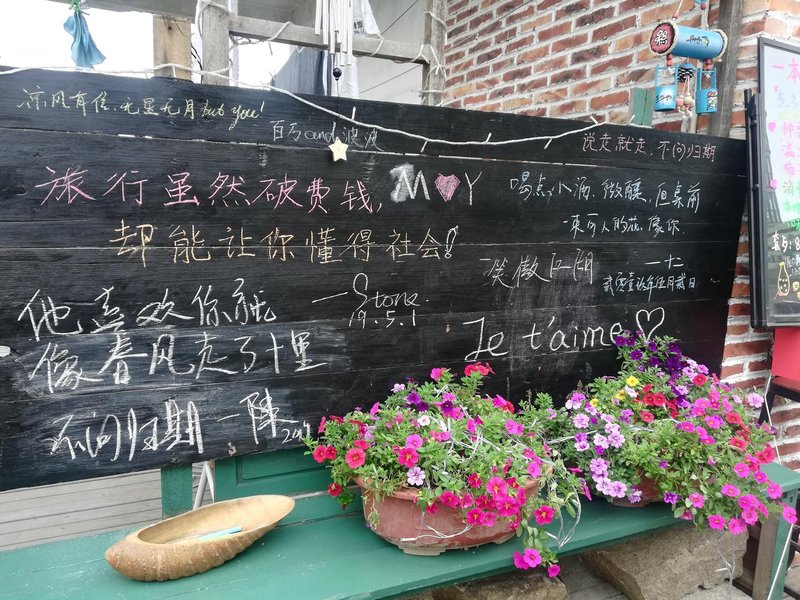 凉风有信，无星无月 but you!
百万 and 波波
说走就走，不问归期
旅行虽然破费钱，
M♥Y
却能让你懂得社会！
喝点小酒，微醺，但桌前
一束可人的花，像你.
笑傲江湖
一十二
—Stone.
19.5.1
他喜欢你就
像春风走了十里
不问归期 一陣
Je t'aime ♡
一本